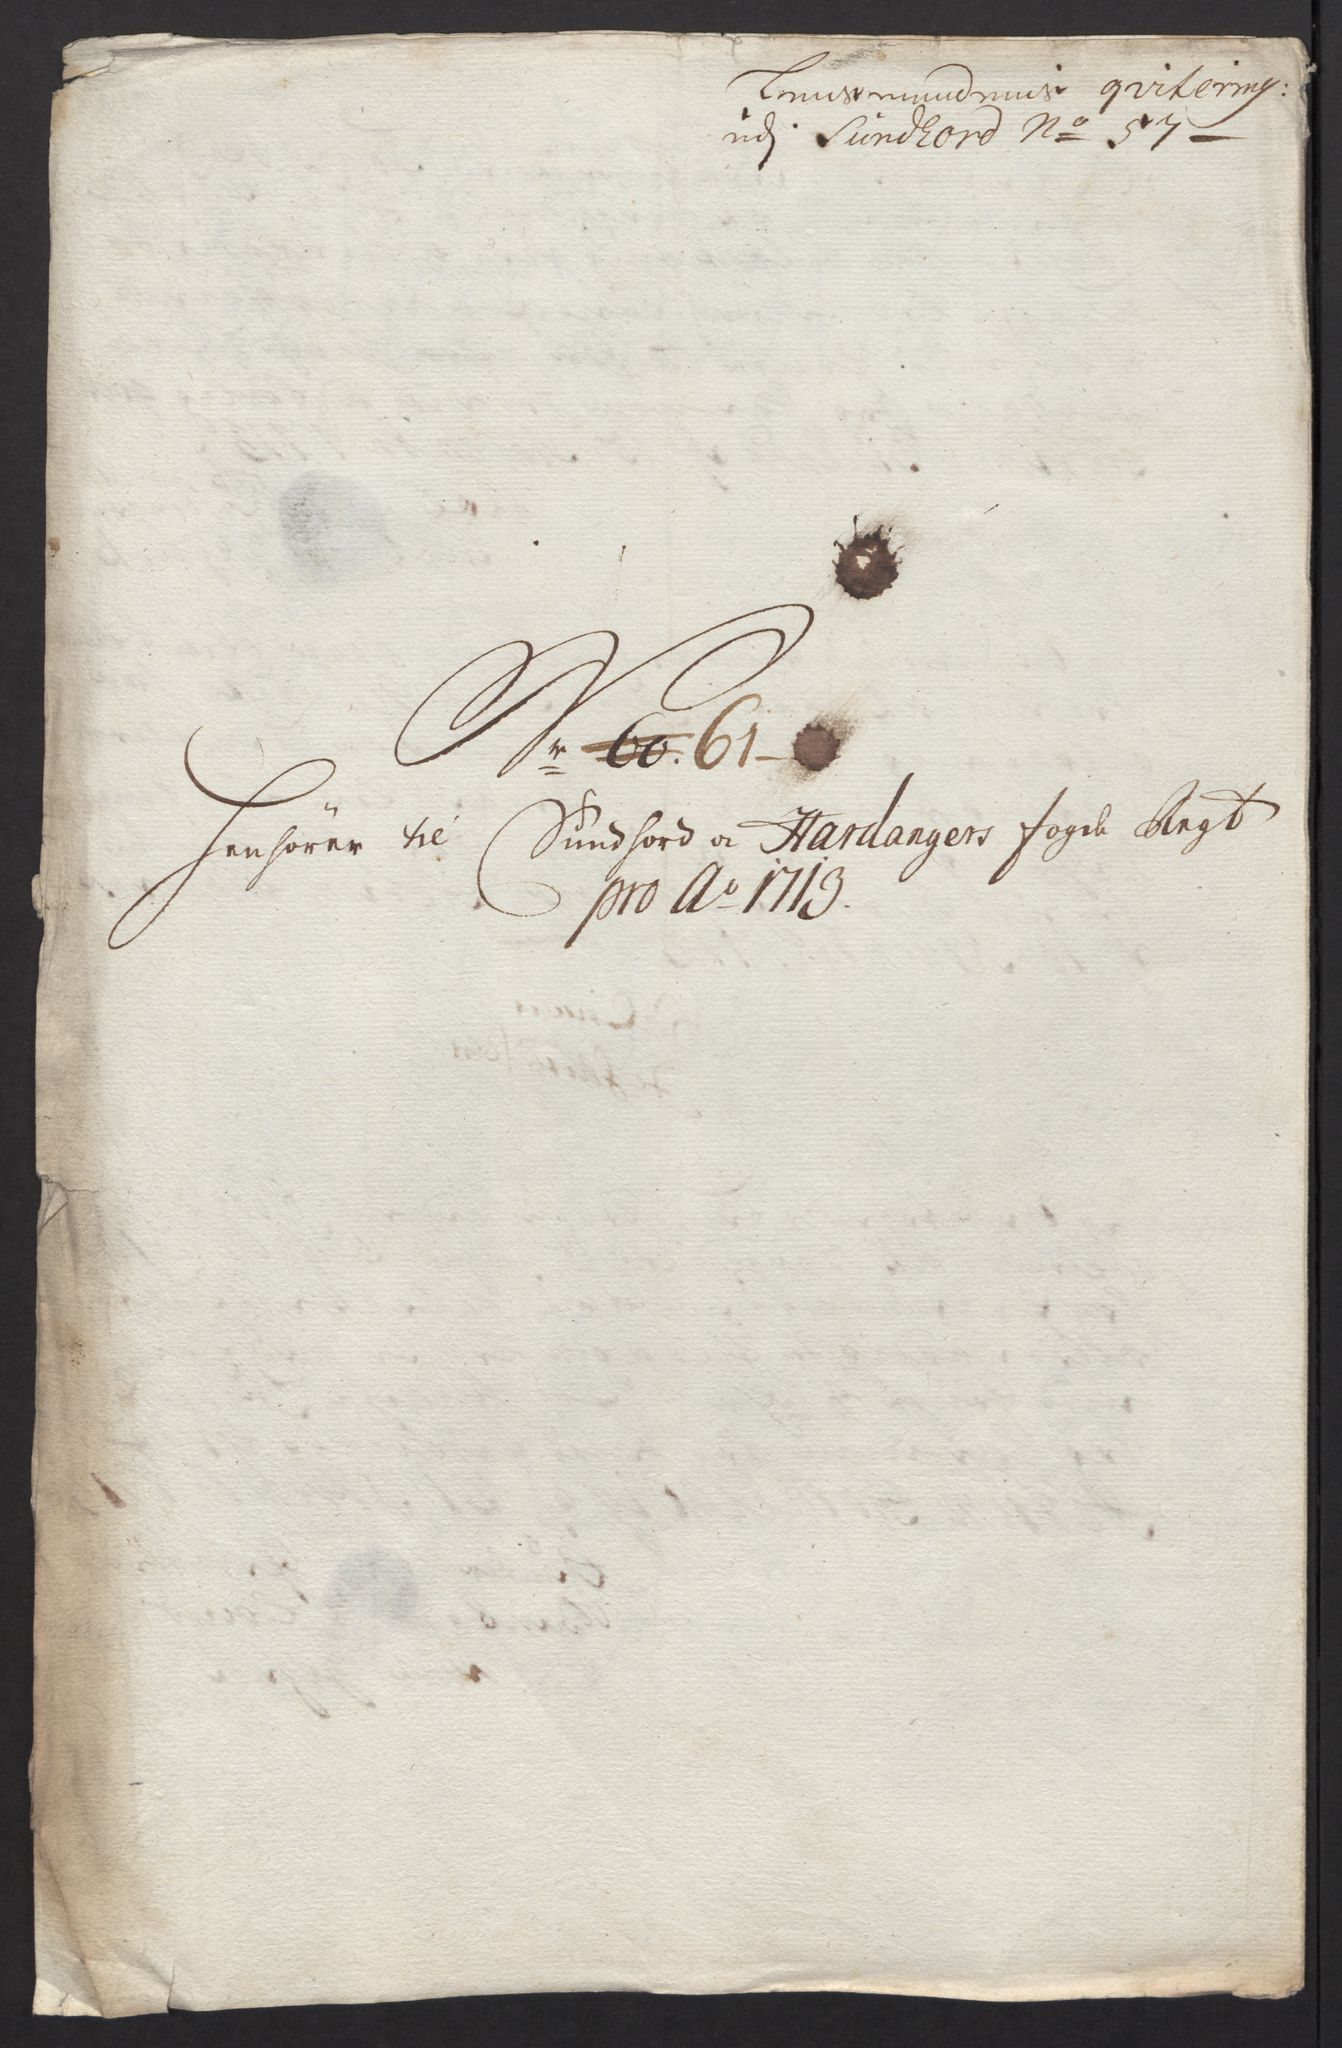 Lensmændenis qvitering:
udj Sundhord No 57
Nr 60. 61
Henhører til Sundhord oc Hardangers fogde Regt
pro Ao 1713.